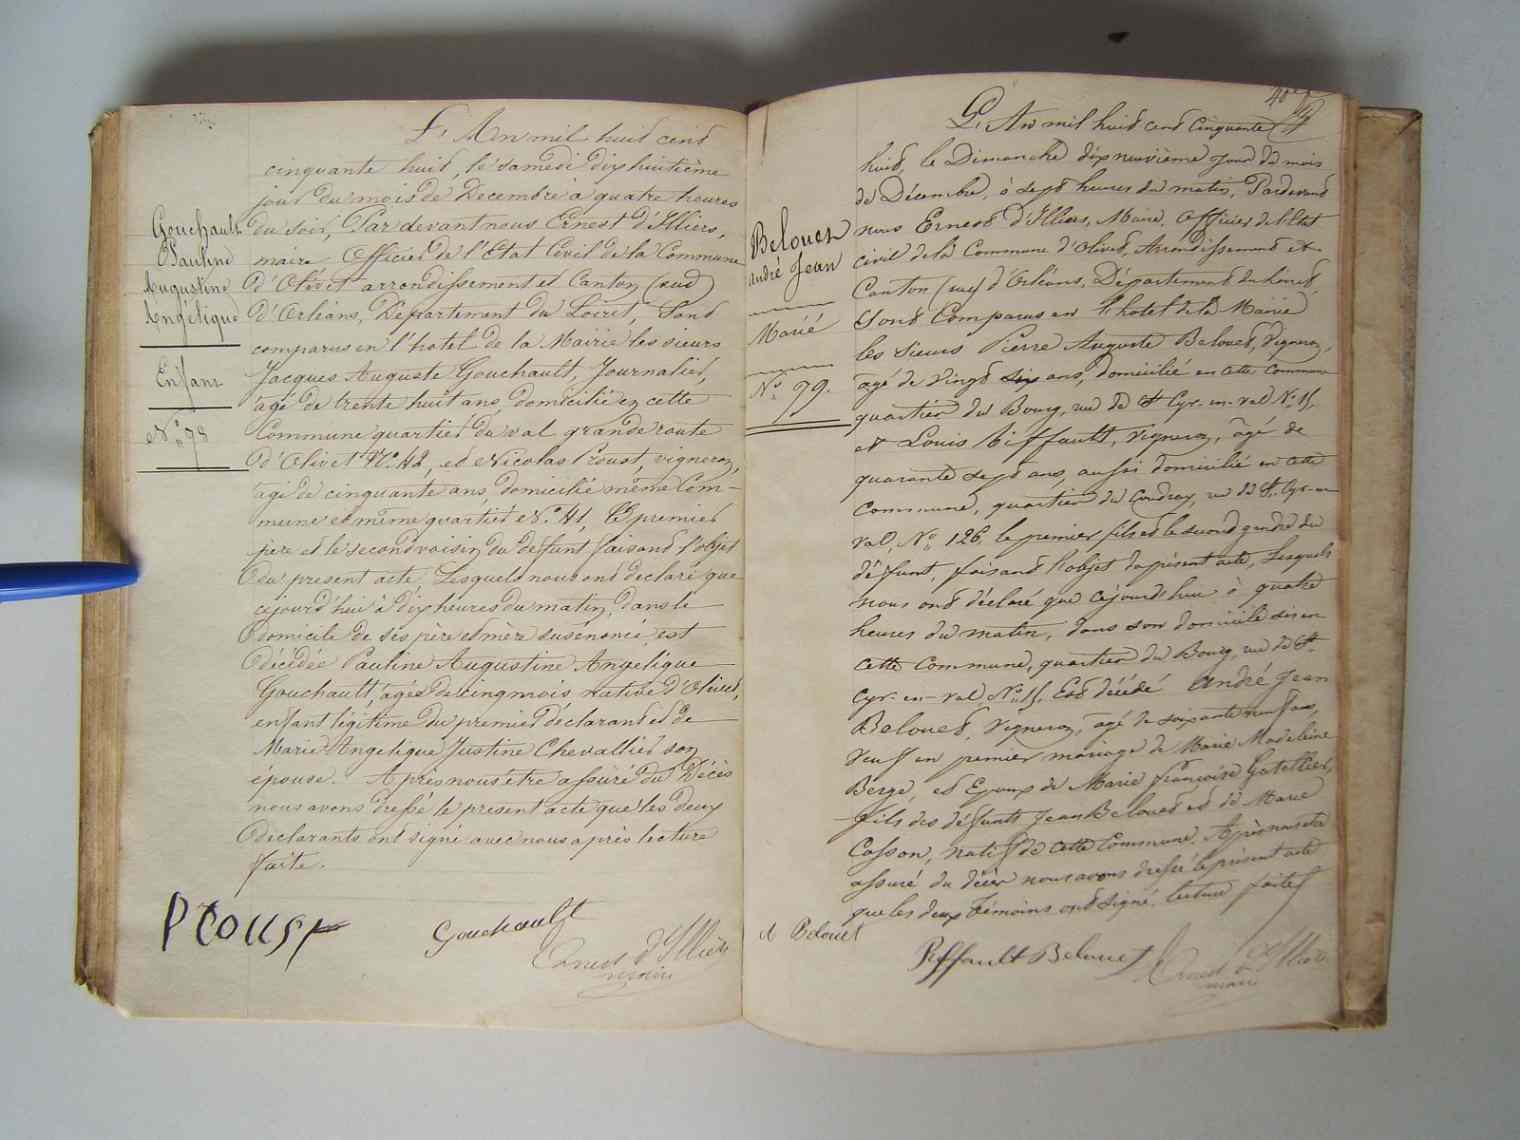 L'An mil huit cent
cinquante huit, le samedi dix huitième
jour du mois de Decembre à quatre heures
du soir, Par devant nous Ernest d'Illiers,
maire Officier de l'Etat Civil de la Commune
d'Olivet arrondissement et Canton (sud)
d'Orléans, Département du Loiret, Sont
comparus en l'hotel de la Mairie les sieurs
Jacques Auguste Gouchault, Journalier,
agé de trente huit ans, domicilié en cette
Commune quartier du val grande route
d'Olivet N° 42, et Nicolas Proust, vigneron,
agé de cinquante ans, domicilié même Com-
mune et même quartier N° 41, Le premier
pere et le second voisin du défunt faisant l'objet
du present acte, Lesquels nous ont declaré que
cejourd'hui à dix heures du matin, dans le
domicile de ses père et mère susénoncé, est
décédée Pauline Augustine Angelique
Gouchault, agée de cinq mois, native d'Olivet,
enfant légitime du premier déclarant et de
Marie Angelique Justine Chevallier son
épouse. Après nous etre assuré du Décès
nous avons dressé le present acte que les deux
declarants ont signé avec nous après lecture
faite.
Gouchault
Pauline
Augustine
Angélique
Enfant
N° 78
Proust
Gouchault
Ernest d'Illiers
maire
40
L'An mil huit cent cinquante
huit, le Dimanche dix neuvième jour du mois
de Décembre, à sept heures du matin, Pardevant
nous Ernest d'Illiers, Maire, Officier de l'Etat
civil de la Commune d'Olivet, Arrondissement et
Canton (sud) d'Orléans, Département du Loiret,
Sont Comparus en l'hotel de la Mairie
les sieurs Pierre Auguste Belouet, Vigneron,
âgé de vingt six ans, domicilié en cette commune
quartier du Bourg, rue de St Cyr-en-val N° 15,
et Louis Riffault, vigneron, âgé de
quarante sept ans, aussi domicilié en cette
Commune, quartier du Coudray, rue de St Cyr-en
val, N° 126, le premier fils et le second gendre du
défunt, faisant l'objet du présent acte, Lesquels
nous ont déclaré que cejourd'hui à quatre
heures du matin, dans son domicile sis en
cette Commune, quartier du Bourg, rue de St
Cyr-en-val, N° 15, Est décédé André Jean
Belouet, Vigneron, âgé de soixante neuf ans,
Veuf en premier mariage de Marie Madeleine
Bergé, et Epoux de Marie françoise Gatellier,
fils des défunts Jean Belouet et de Marie
Cosson, natif de cette Commune. Après nous etre
assuré du décès nous avons dressé le présent acte
que les deux témoins ont signé, lecture faite
Belouet
André Jean
Marié
N° 79.
A Belouet
Riffault Belouet
Ernest d'Illiers
maire